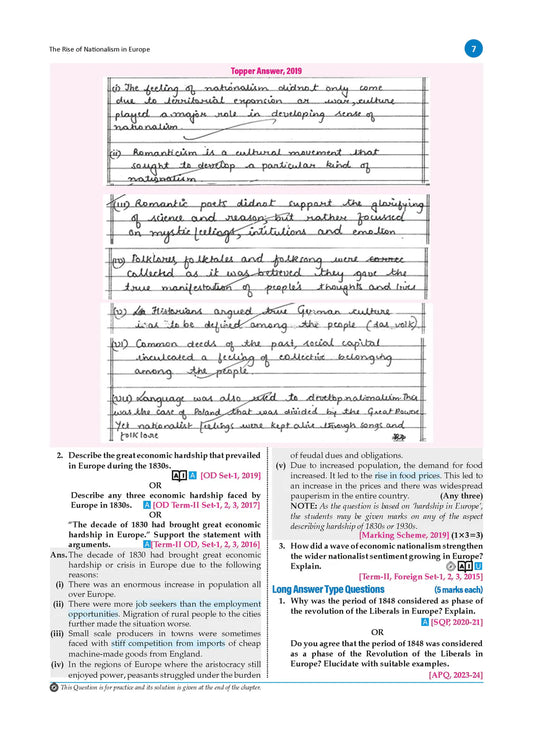 The Rise of Nationalism in Europe
7
Topper Answer, 2019
(i) The feeling of nationalism didnot only come
due to territorial expansion or war, culture
played a major role in developing sense of
nationalism
(ii) Romanticism is a cultural movement that
sought to develop a particular kind of
nationalism
(iii) Romantic poets didnot support the glorifying
of science and reason, but rather focussed
on mystic feelings, intitutions and emotion
(iv) Folklores, folktales and folksong were
collected as it was believed they gave the
true manifestation of people's thoughts and lives
(v) Historians argued true German culture
was to be defined among the people (das volk)
(vi) Common deeds of the past, social capital
inculcated a feeling of collective belonging
among the people.
(vii) Language was also used to develop nationalism. This
was the case of Poland that was divided by the Great Powers
Yet nationalist feelings were kept alive through songs and
folklore
2. Describe the great economic hardship that prevailed
in Europe during the 1830s.
A I A [OD Set-1, 2019]
OR
Describe any three economic hardship faced by
Europe in 1830s. A [OD Term-II Set-1, 2, 3, 2017]
OR
"The decade of 1830 had brought great economic
hardship in Europe." Support the statement with
arguments. A [Term-II OD, Set-1, 2, 3, 2016]
Ans. The decade of 1830 had brought great economic
hardship or crisis in Europe due to the following
reasons:
(i) There was an enormous increase in population all
over Europe.
(ii) There were more job seekers than the employment
opportunities. Migration of rural people to the cities
further made the situation worse.
(iii) Small scale producers in towns were sometimes
faced with stiff competition from imports of cheap
machine-made goods from England.
(iv) In the regions of Europe where the aristocracy still
enjoyed power, peasants struggled under the burden
of feudal dues and obligations.
(v) Due to increased population, the demand for food
increased. It led to the rise in food prices. This led to
an increase in the prices and there was widespread
pauperism in the entire country. (Any three)
NOTE: As the question is based on 'hardship in Europe',
the students may be given marks on any of the aspect
describing hardship of 1830s or 1930s.
[Marking Scheme, 2019] (1×3=3)
3. How did a wave of economic nationalism strengthen
the wider nationalist sentiment growing in Europe?
Explain. A I U
[Term-II, Foreign Set-1, 2, 3, 2015]
Long Answer Type Questions (5 marks each)
1. Why was the period of 1848 considered as phase of
the revolution of the Liberals in Europe? Explain.
A [SQP, 2020-21]
OR
Do you agree that the period of 1848 was considered
as a phase of the Revolution of the Liberals in
Europe? Elucidate with suitable examples.
[APQ, 2023-24]
This Question is for practice and its solution is given at the end of the chapter.